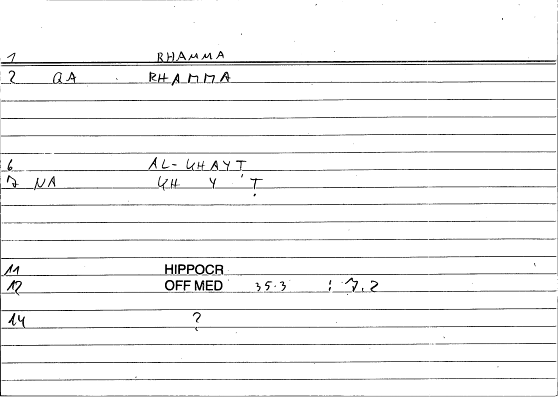 1 RHAMMA
2 QA RHAMMA
6 AL-KHAYṬ
7 NA KH Y ' Ṭ
11 HIPPOCR
12 OFF MED 35.3 : 7.2
14 ?